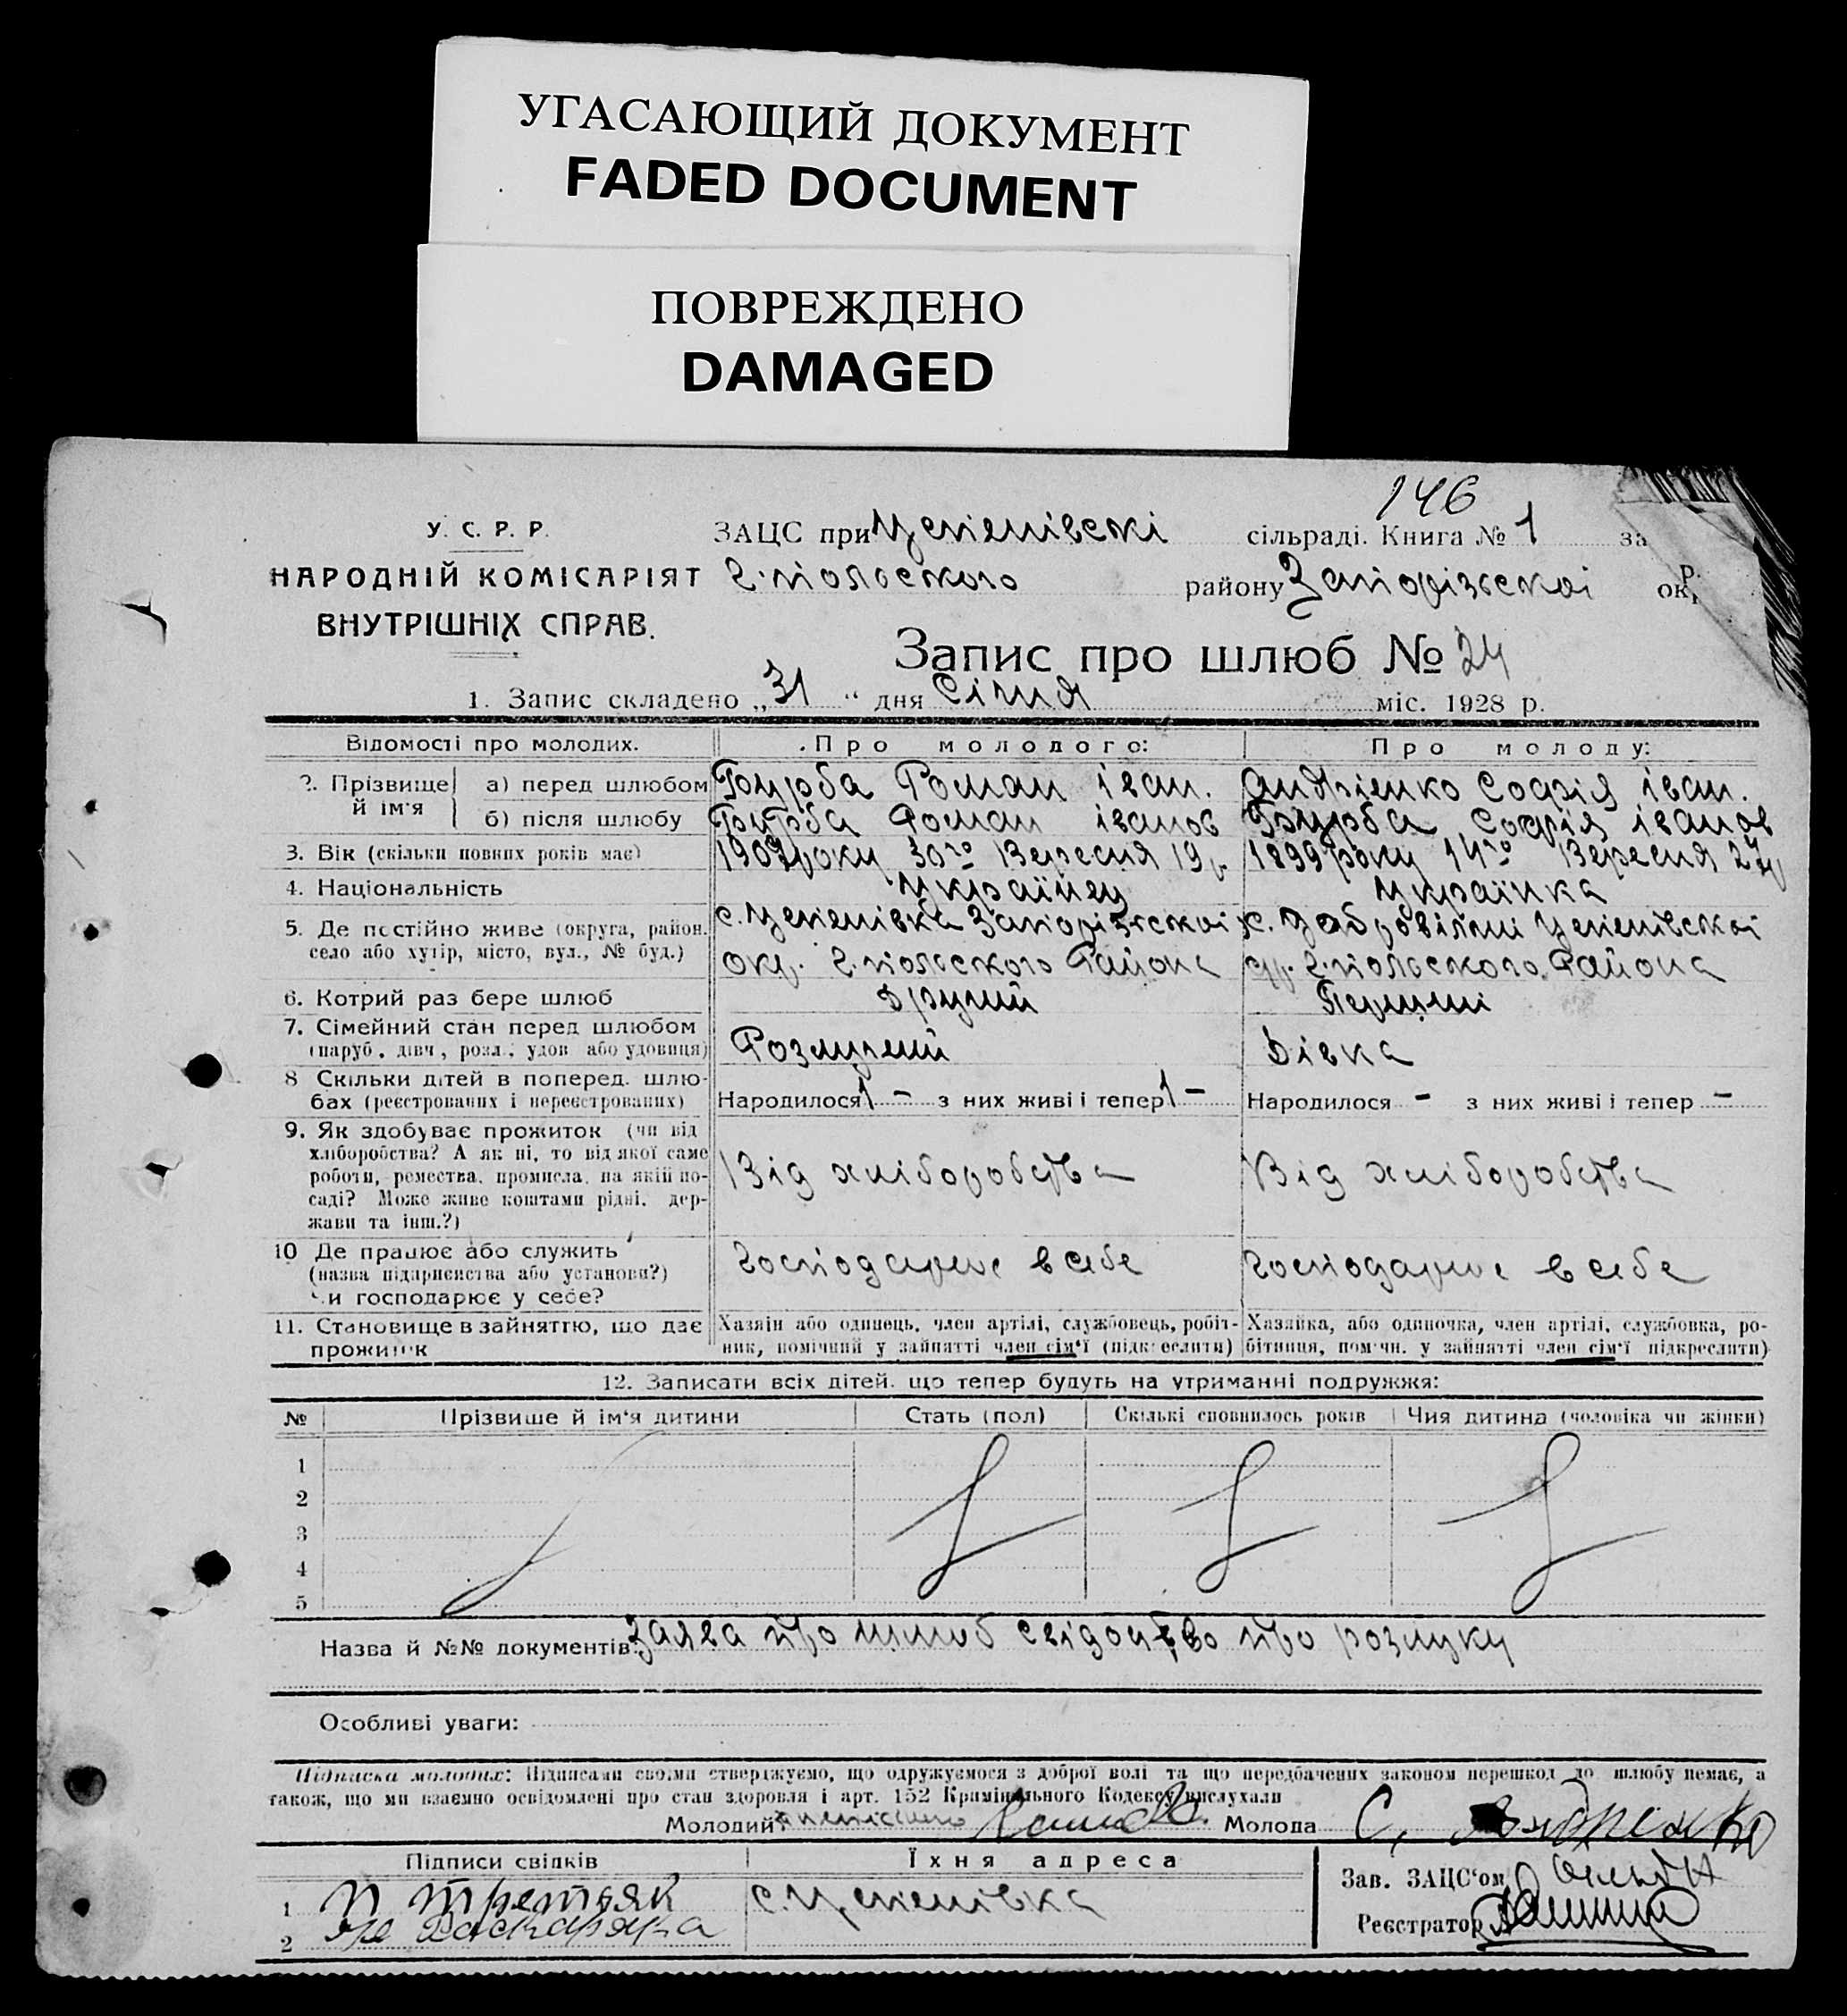 УГАСАЮЩИЙ ДОКУМЕНТ
FADED DOCUMENT
ПОВРЕЖДЕНО
DAMAGED
146
У. С. Р. Р.
НАРОДНІЙ КОМІСАРІЯТ
ВНУТРІШНІХ СПРАВ.
ЗАЦС при сільраді. Книга № 1 за
Г.польського району Запорізської ок
р.
Запис про шлюб № 24
1. Запис складено „31“ дня Січня міс. 1928 р.
Відомості про молодих. Про молодого: Про молоду:
2. Прізвище й ім'я а) перед шлюбом Роман Іван. Андрієнко Софія Іван.
б) після шлюбу Роман Іванов Софія Іванов
3. Вік (скільки повних років має) 1907 року 30го Вересня 19 р. 1899 року 14го Вересня 27 р
4. Національність Українец Українка
5. Де постійно живе (округа, район, село або хутір, місто, вул., № буд.) с. Запорізської окр. Г.польського Района
с. окр. Г.польського Района
6. Котрий раз бере шлюб Другий
7. Сімейний стан перед шлюбом (паруб., дівч., розл., удов або удовиця) Дівка
8 Скільки дітей в поперед. шлюбах (реєстрованих і нереєстрованих) Народилося 1 - з них живі і тепер 1 - Народилося - з них живі і тепер -
9. Як здобуває прожиток (чи від
хліборобства? А як ні, то від якої саме
роботи, ремества, промисла, на якій по-
саді? Може живе коштами рідні, дер-
жави та інш.?) Від хліборобства Від хліборобства
10 Де працює або служить
(назва підприємства або установи?)
Чи господарює у себе? Господарює в себе Господарює в себе
11. Становище в зайняттю, що дає
прожиток Хазяїн або одинець, член артілі, службовець, робіт-
ник, помічний у зайнятті член сім'ї (підкреслити) Хазяйка, або одиночка, член артілі, службовка, ро-
бітниця, помічн. у зайнятті член сім'ї підкреслити)
12. Записати всіх дітей, що тепер будуть на утриманні подружжя:
№ Прізвище й ім'я дитини Стать (пол) Скількі сповнилось років Чия дитина (чоловіка чи жінки)
1
2
3
4
5
Назва й №№ документів: Заява про шлюб свідоцтво про розлуку
Особливі уваги:
Підписка молодих: Підписами своїми стверджуємо, що одружуємося з доброї волі та що передбачених законом перешкод до шлюбу немає, а
також, що ми взаємно освідомлені про стан здоровля і арт. 152 Кримінального Кодексу вислухали
Молодий Молода С.
Підписи свідків Їхня адреса Зав. ЗАЦС'ом
1 П Третяк с.
2 Реєстратор